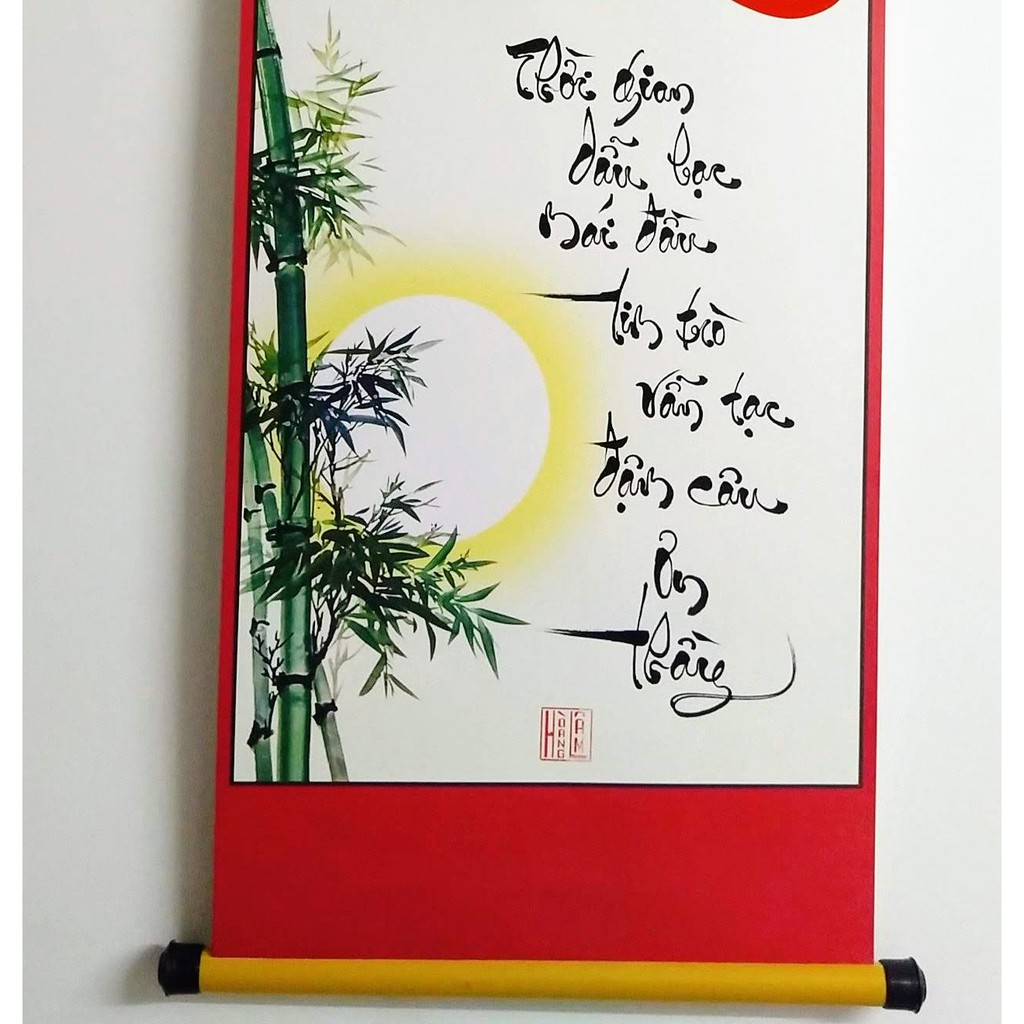 Thời gian
dẫu bạc
mái đầu
Tim trò
vẫn tạc
đậm câu
ơn
thầy
HOÀNG LÂM